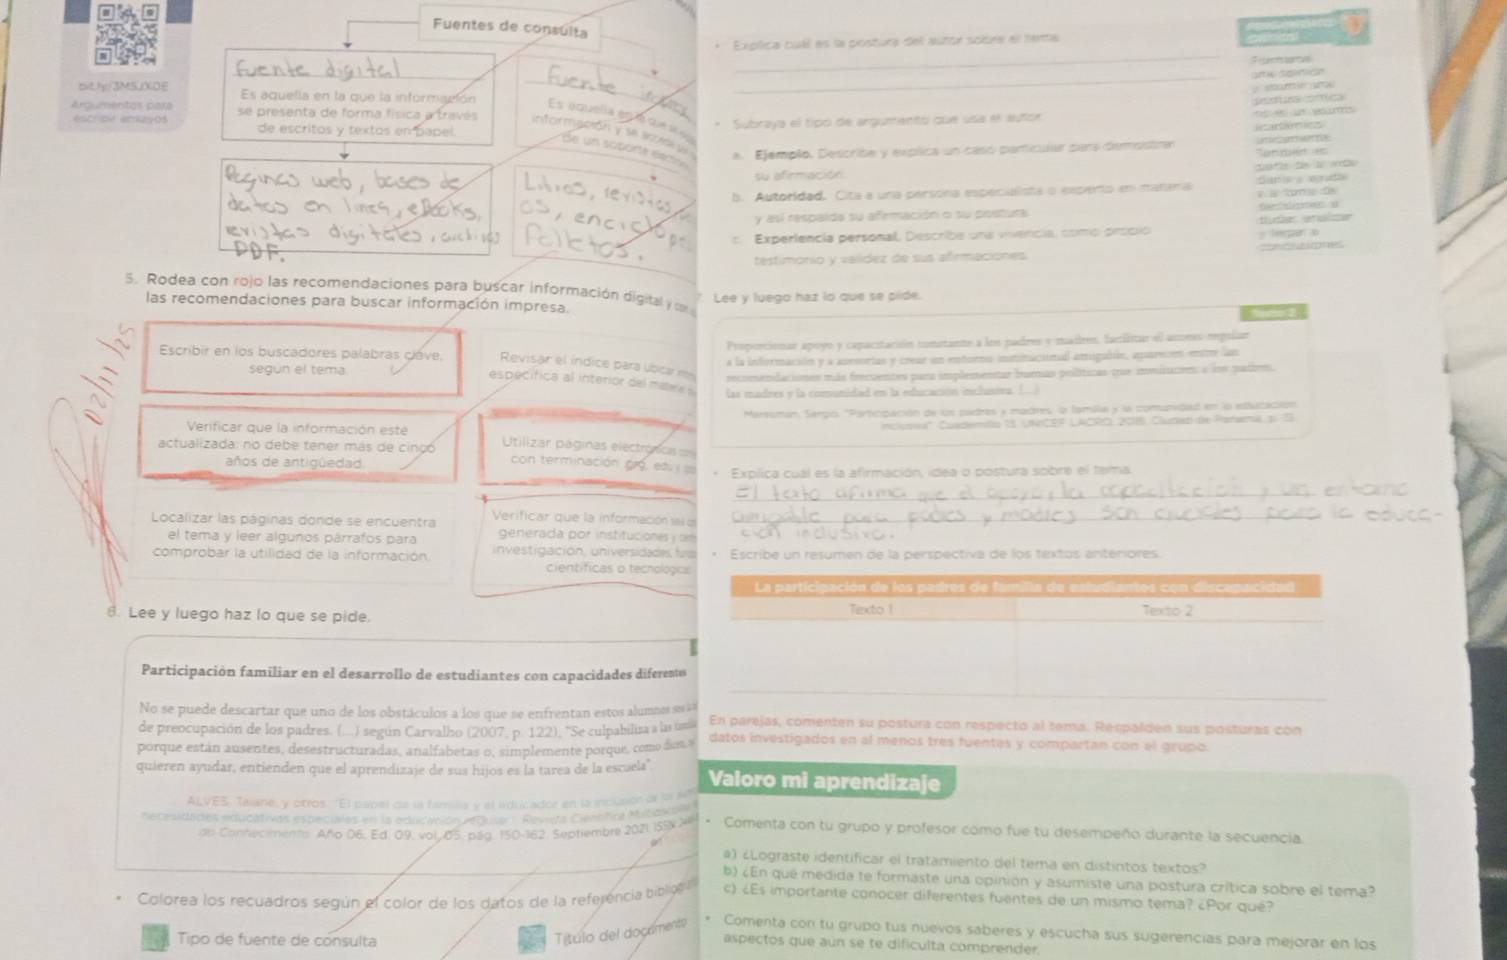 Fuentes de consulta
bit.ly/3M5JXDE
Argumentos para
escribir ensayos
Fuente digital
Es aquella en la que la información
se presenta de forma física a través
de escritos y textos en papel.
Fuente
Es aquella en la que
información y se
de un soporte
Paginas web, bases de
datos en linea, eBooks,
revistas digitales, archivos
PDF.
Libros, revistas
os, enciclope
Folletos.
5. Rodea con rojo las recomendaciones para buscar información digital y con
las recomendaciones para buscar información impresa.
02/11/25
Escribir en los buscadores palabras clave,
según el tema.
Revisar el índice para ubicar
específica al interior del
Verificar que la información esté
actualizada: no debe tener más de cinco
años de antigüedad.
Utilizar páginas electrónicas
con terminación org, edu y
Localizar las páginas donde se encuentra
el tema y leer algunos párrafos para
comprobar la utilidad de la información.
Verificar que la información
generada por instituciones y
investigación, universidades,
científicas o tecnológicas
6. Lee y luego haz lo que se pide.
Participación familiar en el desarrollo de estudiantes con capacidades diferentes
No se puede descartar que uno de los obstáculos a los que se enfrentan estos alumnos
de preocupación de los padres. (...) según Carvalho (2007, p. 122), "Se culpabiliza a las
porque están ausentes, desestructuradas, analfabetas o, simplemente porque, como
quieren ayudar, entienden que el aprendizaje de sus hijos es la tarea de la escuela".
ALVES, Taiane, y otros. "El papel de la familia y el educador en la inclusión de los
necesidades educativas especiales en la educación regular". Revista Científica
do Conhecimento. Año 06, Ed. 09, vol. 05, pág. 150-162. Septiembre 2021. ISSN
• Colorea los recuadros según el color de los datos de la referencia
Tipo de fuente de consulta
Título del documento
• Explica cuál es la postura del autor sobre el tema.
• Subraya el tipo de argumento que usa el autor.
a. Ejemplo. Describe y explica un caso particular para demostrar
su afirmación.
b. Autoridad. Cita a una persona especialista o experto en materia
y así respalda su afirmación o su postura.
c. Experiencia personal. Describe una vivencia, como propio
testimonio y validez de sus afirmaciones.
7. Lee y luego haz lo que se pide.
Texto 2
Proporcionar apoyo y capacitación constante a los padres y madres, facilitar el acceso regular
a la información y a asesorías y crear un entorno institucional amigable, aparecen entre las
recomendaciones más frecuentes para implementar buenas políticas que involucren a los padres,
las madres y la comunidad en la educación inclusiva. (...)
"Participación de los padres y madres, la familia y la comunidad en la educación
inclusiva". Cuadernillo 13. UNICEF LACRO, Ciudad de Panamá, p. 13.
• Explica cuál es la afirmación, idea o postura sobre el tema.
El texto afirma que el apoyo, la capacitacion y un entorno
amigable para padres y madres son cruciales para la educa-
ción inclusiva.
• Escribe un resumen de la perspectiva de los textos anteriores.
La participación de los padres de familia de estudiantes con discapacidad
Texto 1
Texto 2
En parejas, comenten su postura con respecto al tema. Respalden sus posturas con
datos investigados en al menos tres fuentes y compartan con el grupo.
Valoro mi aprendizaje
• Comenta con tu grupo y profesor cómo fue tu desempeño durante la secuencia.
a) ¿Lograste identificar el tratamiento del tema en distintos textos?
b) ¿En qué medida te formaste una opinión y asumiste una postura crítica sobre el tema?
c) ¿Es importante conocer diferentes fuentes de un mismo tema? ¿Por qué?
• Comenta con tu grupo tus nuevos saberes y escucha sus sugerencias para mejorar en los
aspectos que aún se te dificulta comprender.